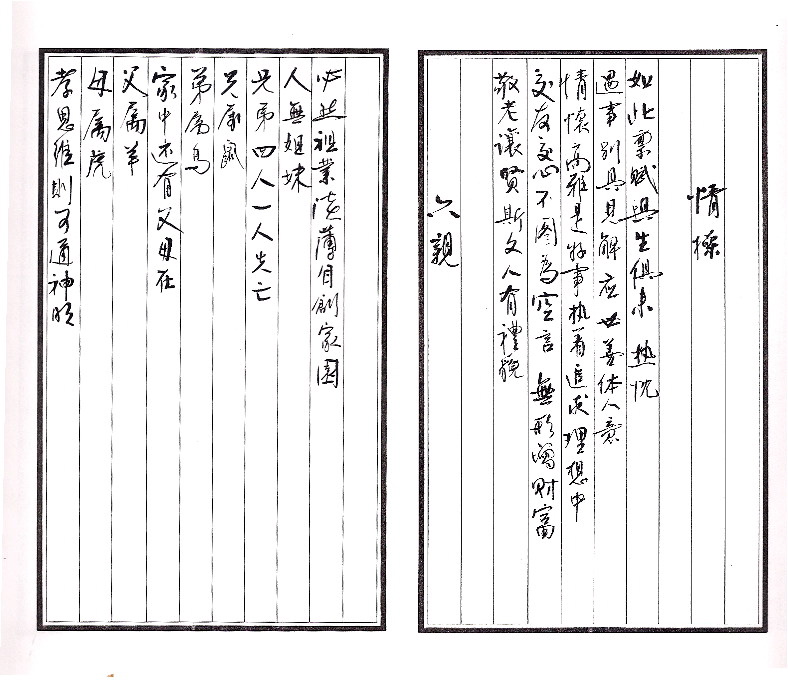 情操
如此禀赋與生俱來 热忱
遇事别具見解应世善体人意
情懷高雅是好事执着追求理想中
交友交心不图為空言 無形增财富
敬老讓賢斯文人有禮貌
六親
必然祖業淡薄自創家園
人無姐妹
兄弟四人一人失亡
兄属鼠
弟属馬
家中还有父母在
父属羊
母属虎
孝思維則可通神明